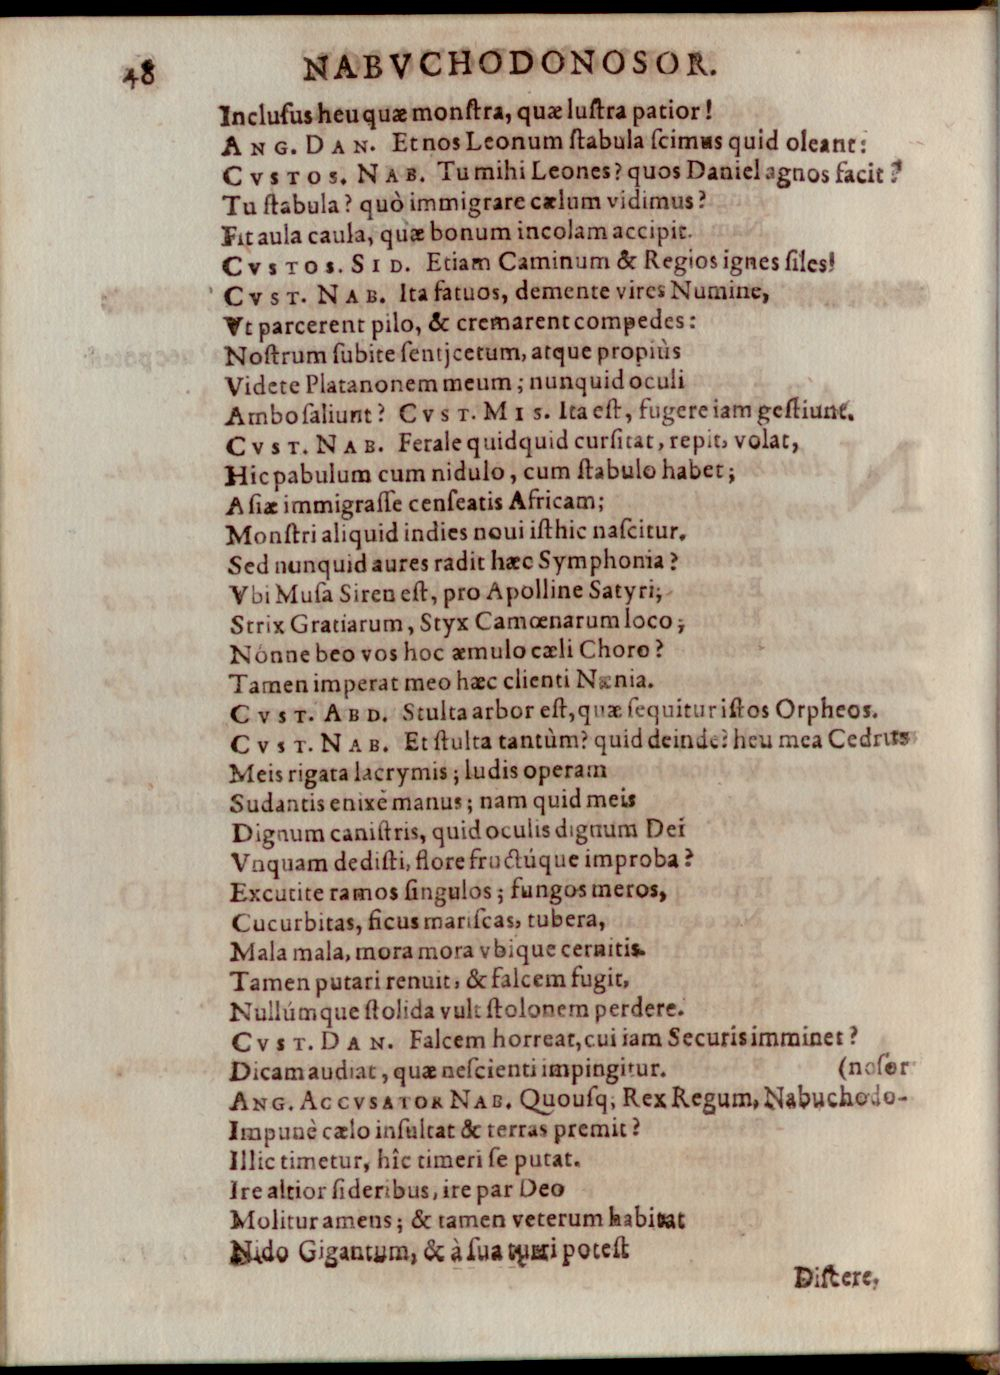 48 NABVCHODONOSOR.
Inclusus heu quæ monstra, quæ lustra patior!
ANG. DAN. Et nos Leonum stabula scimus quid oleant:
CVSTOS. NAB. Tu mihi Leones? quos Daniel agnos facit?
Tu stabula? quò immigrare cælum vidimus?
Fit aula caula, quæ bonum incolam accipit.
CVSTOS. SID. Etiam Caminum & Regios ignes siles!
CVST. NAB. Ita fatuos, demente vires Numine,
Vt parcerent pilo, & cremarent compedes:
Nostrum subite sentjcetum, atque propiùs
Videte Platanonem meum; nunquid oculi
Ambo saliunt? CVST. MIS. Ita est, fugere iam gestiunt.
CVST. NAB. Ferale quidquid cursitat, repit, volat,
Hic pabulum cum nidulo, cum stabulo habet;
Asiæ immigrasse censeatis Africam;
Monstri aliquid indies noui isthic nascitur.
Sed nunquid aures radit hæc Symphonia?
Vbi Musa Siren est, pro Apolline Satyri;
Strix Gratiarum, Styx Camœnarum loco;
Nónne beo vos hoc æmulo cæli Choro?
Tamen imperat meo hæc clienti Nænia.
CVST. ABD. Stulta arbor est, quæ sequitur istos Orpheos.
CVST. NAB. Et stulta tantùm? quid deinde? heu mea Cedrus
Meis rigata lacrymis; ludis operam
Sudantis enixè manus; nam quid meis
Dignum canistris, quid oculis dignum Dei
Vnquam dedisti, flore fructúque improba?
Excutite ramos singulos; fungos meros,
Cucurbitas, ficus mariscas, tubera,
Mala mala, mora mora vbique cernitis.
Tamen putari renuit, & falcem fugit,
Nullúmque stolida vult stolonem perdere.
CVST. DAN. Falcem horreat, cui iam Securis imminet?
Dicam audiat, quæ nescienti impingitur. (nosor
ANG. ACCVSATOR NAB. Quousq; Rex Regum, Nabuchodo-
Impunè cælo insultat & terras premit?
Illic timetur, hîc timeri se putat.
Ire altior sideribus, ire par Deo
Molitur amens; & tamen veterum habitat
Nido Gigantum, & à sua turri potest
Discere,